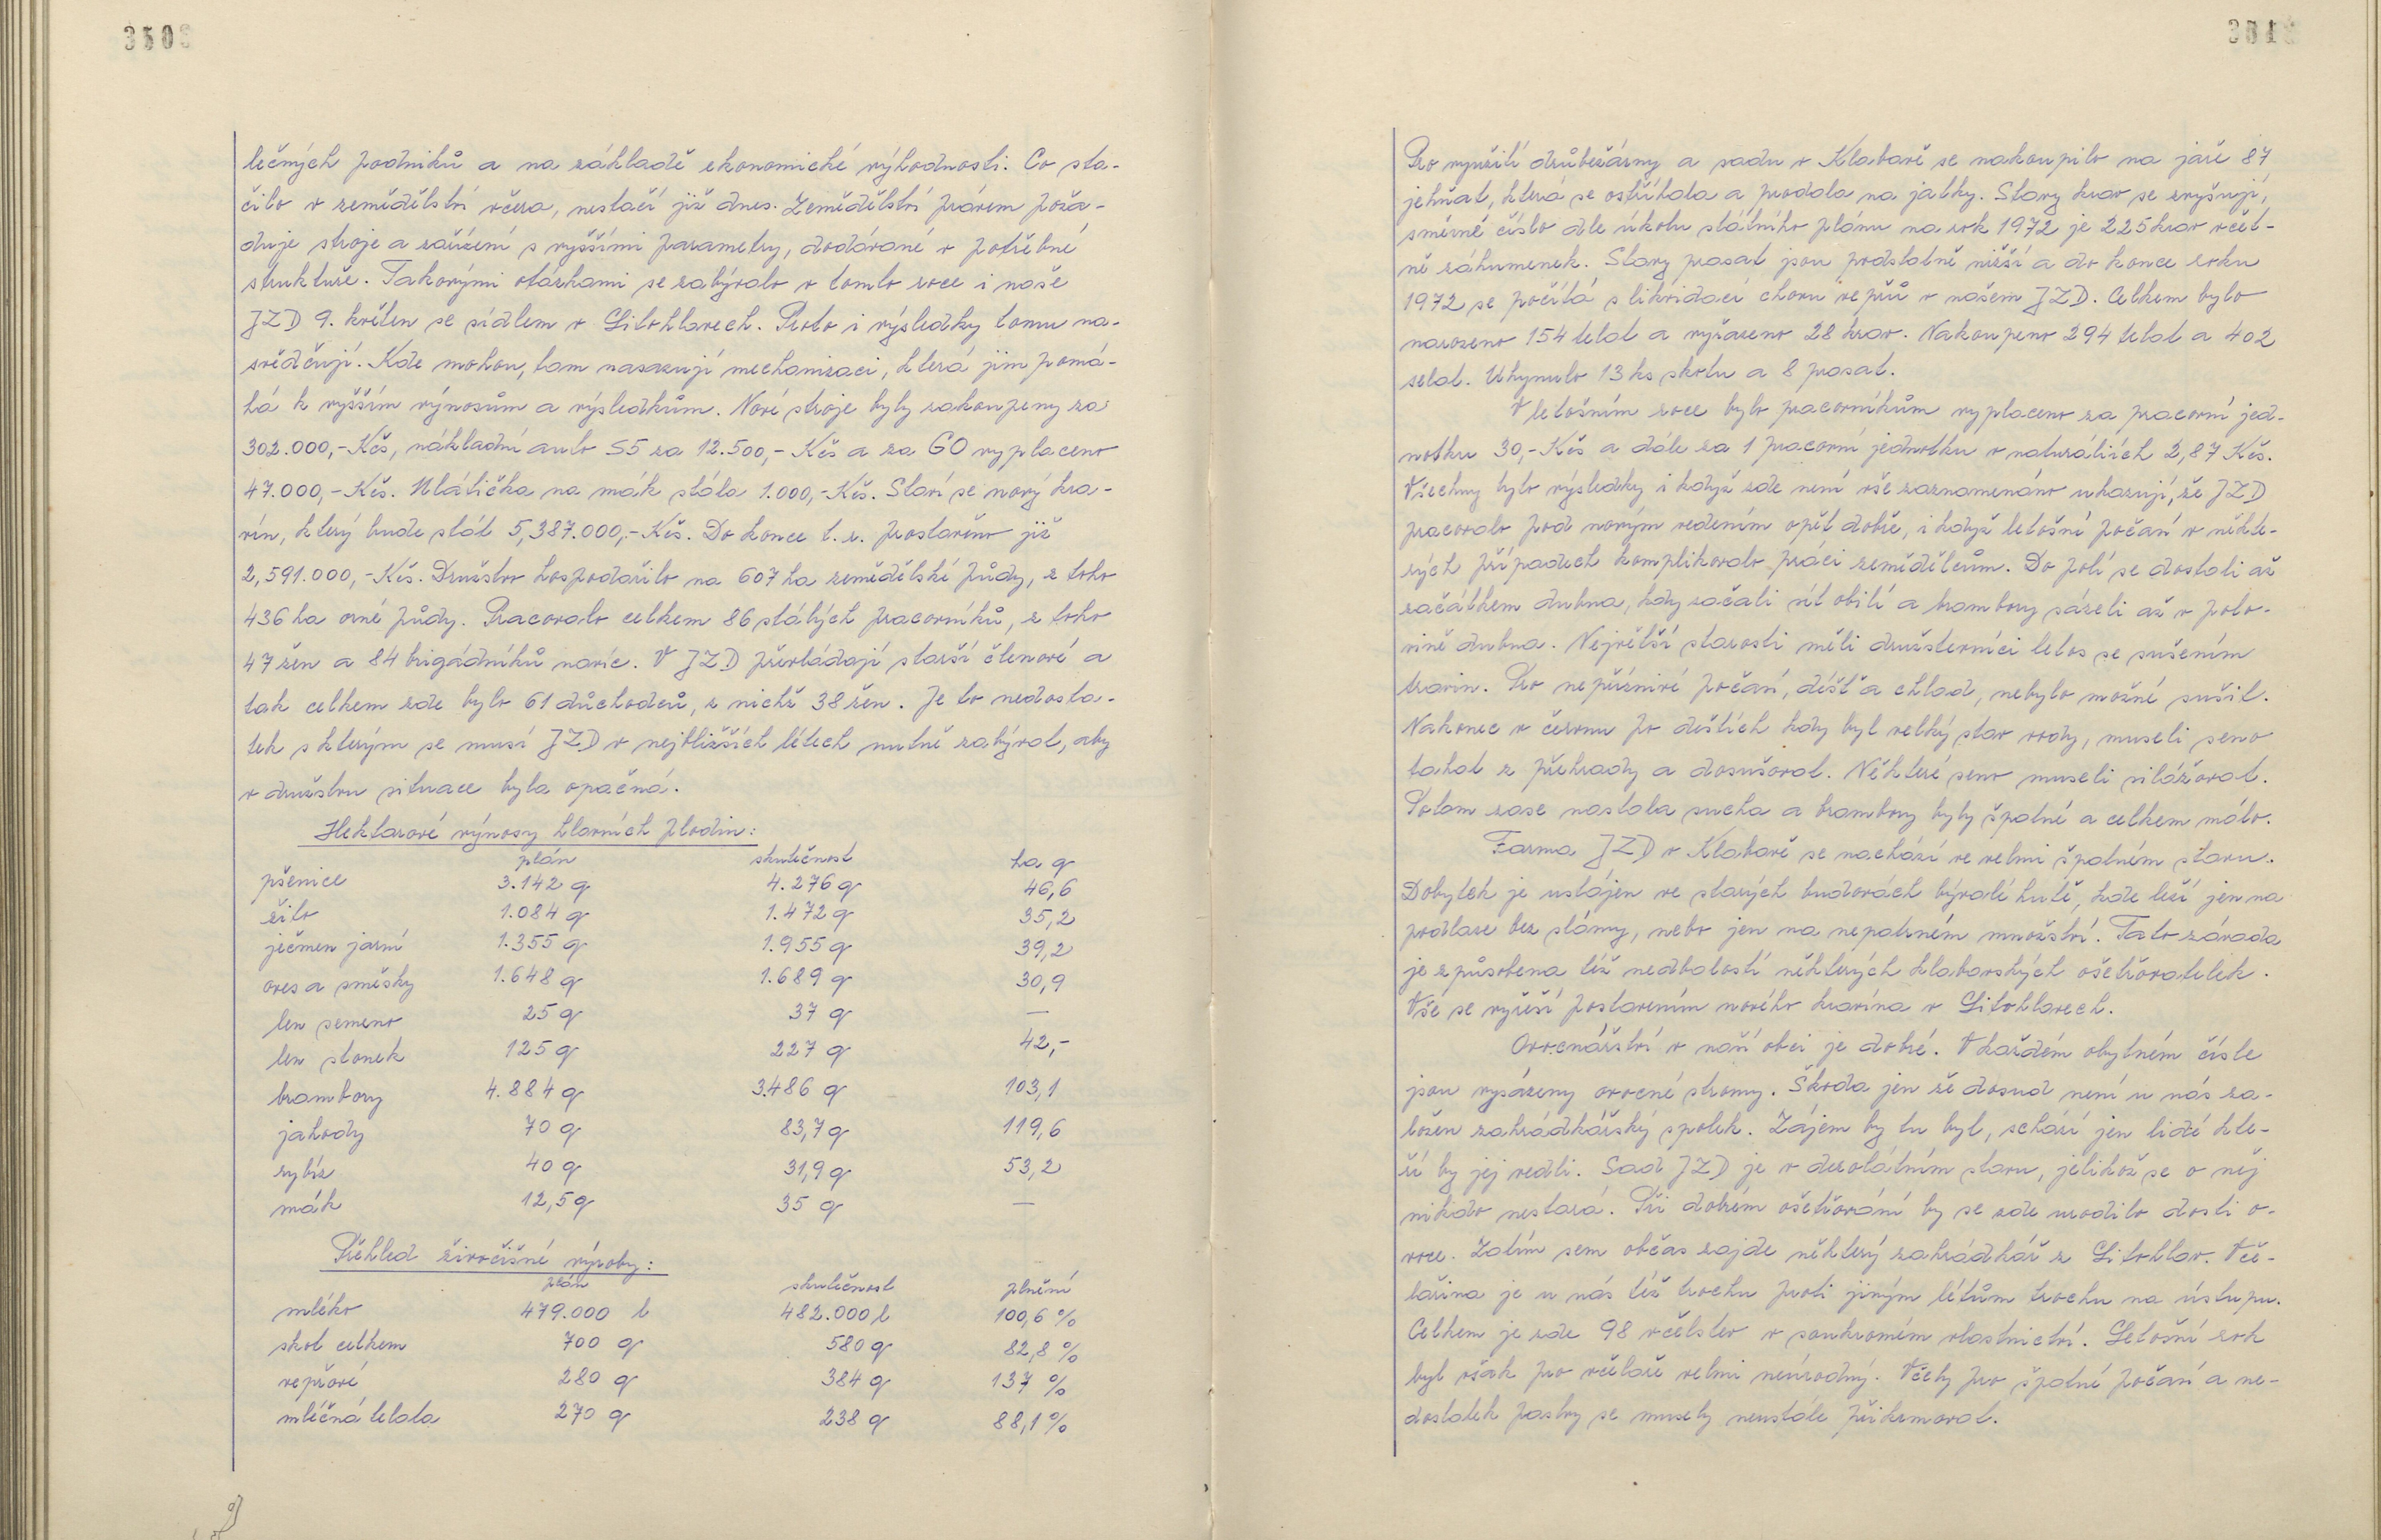 350
lečných podniků a na základě ekonomické výhodnosti. Co sta-
čilo v zemědělství včera, nestačí již dnes. Zemědělství právem poža-
duje stroje a zařízení s vyššími parametry, dodávané v potřebné
struktuře. Takovými otázkami se zabývalo v tomto roce i naše
JZD 9. květen se sídlem v Litohlavech. Proto i výsledky tomu na-
svědčují. Kde mohou, tam nasazují mechanizaci, která jim pomá-
há k vyšším výnosům a výsledkům. Nové stroje byly zakoupeny za
302.000,- Kčs, nákladní auto S5 za 12.500,- Kčs a za GO vyplaceno
47.000,- Kčs. Mlátička na mák stála 1.000,- Kčs. Staví se nový kra-
vín, který bude stát 5,387.000,- Kčs. Do konce t. r. prostavěno již
2,591.000,- Kčs. Družstvo hospodařilo na 607 ha zemědělské půdy, z toho
436 ha orné půdy. Pracovalo celkem 86 stálých pracovníků, z toho
47 žen a 84 brigádníků navíc. V JZD převládají starší členové a
tak celkem zde bylo 61 důchodců, z nichž 38 žen. Je to nedosta-
tek s kterým se musí JZD v nejbližších létech nutně zabývat, aby
v družstvu situace byla opačná.
Hektarové výnosy hlavních plodin:
plán skutečnost ha q
pšenice 3.142 q 4.276 q 46,6
žito 1.084 q 1.472 q 35,2
ječmen jarní 1.355 q 1.955 q 39,2
oves a směsky 1.648 q 1.689 q 30,9
len semeno 25 q 37 q —
len stonek 125 q 227 q 42,-
brambory 4.884 q 3.486 q 103,1
jahody 70 q 83,7 q 119,6
rybíz 40 q 31,9 q 53,2
mák 12,5 q 35 q —
Přehled živočišné výroby:
plán skutečnost plnění
mléko 479.000 l 482.000 l 100,6 %
skot celkem 700 q 580 q 82,8 %
vepřové 280 q 384 q 137 %
mléčná telata 270 q 238 q 88,1 %
351
Pro využití drůbežárny a sadu v Klabavě se nakoupilo na jaře 87
jehňat, která se ostříhala a prodala na jatky. Stavy krav se zvyšují,
směrné číslo dle úkolu státního plánu na rok 1972 je 225 krav včet-
ně záhumenek. Stavy prasat jsou podstatně nižší a do konce roku
1972 se počítá s likvidací chovu vepřů v našem JZD. Celkem bylo
narozeno 154 telat a vyřazeno 28 krav. Nakoupeno 294 telat a 402
selat. Uhynulo 13 ks skotu a 8 prasat.
V letošním roce bylo pracovníkům vyplaceno za pracovní jed-
notku 30,- Kčs a dále za 1 pracovní jednotku v naturáliích 2,87 Kčs.
Všechny tyto výsledky i když zde není vše zaznamenáno ukazují, že JZD
pracovalo pod novým vedením opět dobře, i když letošní počasí v někte-
rých případech komplikovalo práci zemědělcům. Do polí se dostali až
začátkem dubna, kdy začali sít obilí a brambory sázeli až v polo-
vině dubna. Největší starosti měli družstevníci letos se sušením
travin. Pro nepříznivé počasí, déšť a chlad, nebylo možné sušit.
Nakonec v červnu po deštích kdy byl velký stav vody, museli seno
tahat z přehrady a dosušovat. Některé seno museli silážovat.
Potom zase nastala sucha a brambory byly špatné a celkem málo.
Farma JZD v Klabavě se nachází ve velmi špatném stavu.
Dobytek je ustájen ve starých budovách bývalé hutě, kde leží jen na
podlaze bez slámy, nebo jen na nepatrném množství. Tato závada
je způsobena též nedbalostí některých klabavských ošetřovatelek.
Vše se vyřeší postavením nového kravína v Litohlavech.
Ovocnářství v naší obci je dobré. V každém obytném čísle
jsou vysázeny ovocné stromy. Škoda jen že dosud není u nás za-
ložen zahrádkářský spolek. Zájem by tu byl, schází jen lidé kte-
ří by jej vedli. Sad JZD je v desolátním stavu, jelikož se o něj
nikdo nestará. Při dobrém ošetřování by se zde urodilo dosti o-
voce. Zatím sem občas zajde některý zahrádkář z Litohlav. Vče-
lařina je u nás též trochu proti jiným létům trochu na ústupu.
Celkem je zde 98 včelstev v soukromém vlastnictví. Letošní rok
byl však pro včelaře velmi neúrodný. Včely pro špatné počasí a ne-
dostatek pastvy se musely neustále přikrmovat.